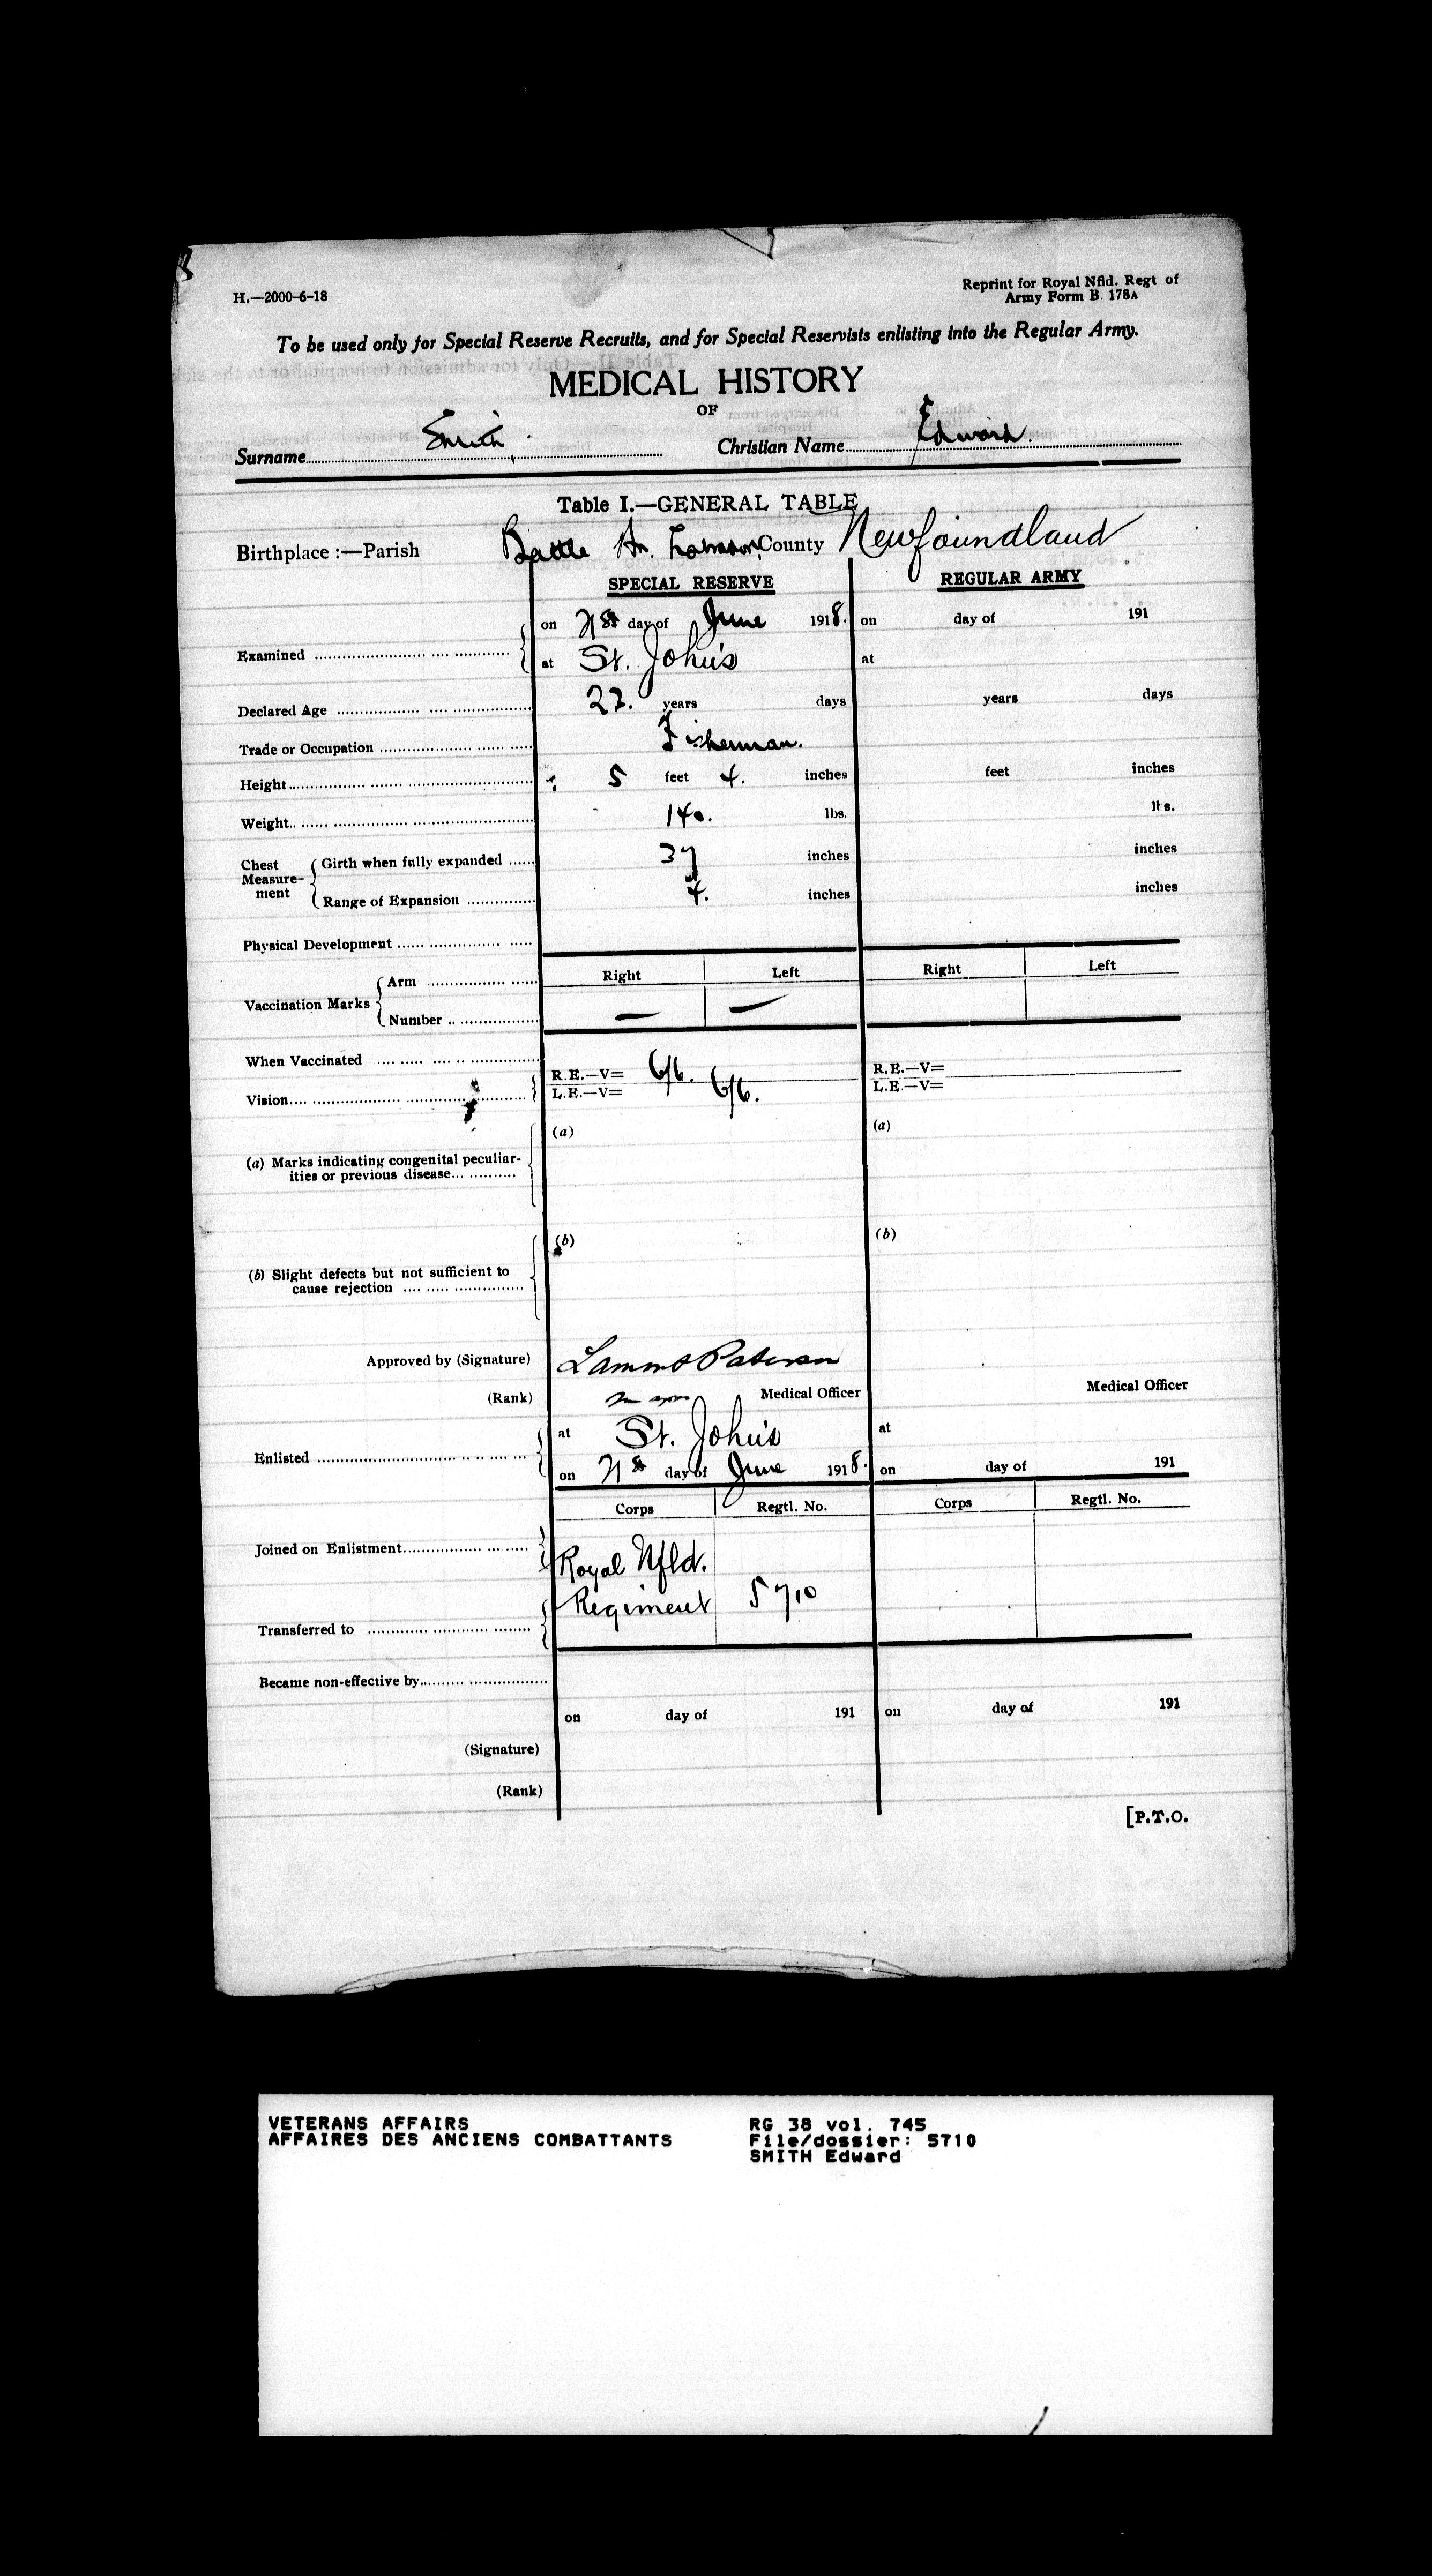 H.—2000-6-18
Reprint for Royal Nfld. Regt of
Army Form B. 178A
To be used only for Special Reserve Recruits, and for Special Reservists enlisting into the Regular Army.
MEDICAL HISTORY
OF
Surname Smith Christian Name Edward.
Table I.—GENERAL TABLE
Birthplace :—Parish Battle Hr. Labrador County Newfoundland
SPECIAL RESERVE REGULAR ARMY
on 21st day of June 1918. on day of 191
Examined
at St. John's at
Declared Age 22. years days years days
Trade or Occupation Fisherman.
Height 5 feet 4. inches feet inches
Weight 140. lbs. lbs.
Chest Measurement Girth when fully expanded 37 inches inches
Range of Expansion 4. inches inches
Physical Development
Right Left Right Left
Vaccination Marks Arm
Number — —
When Vaccinated
Vision R.E.—V= 6/6. R.E.—V=
L.E.—V= 6/6. L.E.—V=
(a) (a)
(a) Marks indicating congenital peculiar-
ities or previous disease
(b) (b)
(b) Slight defects but not sufficient to
cause rejection
Approved by (Signature) Lamont Paterson
(Rank) Major Medical Officer Medical Officer
at St. John's at
Enlisted
on 21st day of June 1918. on day of 191
Corps Regtl. No. Corps Regtl. No.
Joined on Enlistment Royal Nfld.
Regiment 5710
Transferred to
Became non-effective by
on day of 191 on day of 191
(Signature)
(Rank)
[P.T.O.
VETERANS AFFAIRS RG 38 vol. 745
AFFAIRES DES ANCIENS COMBATTANTS File/dossier: 5710
SMITH Edward